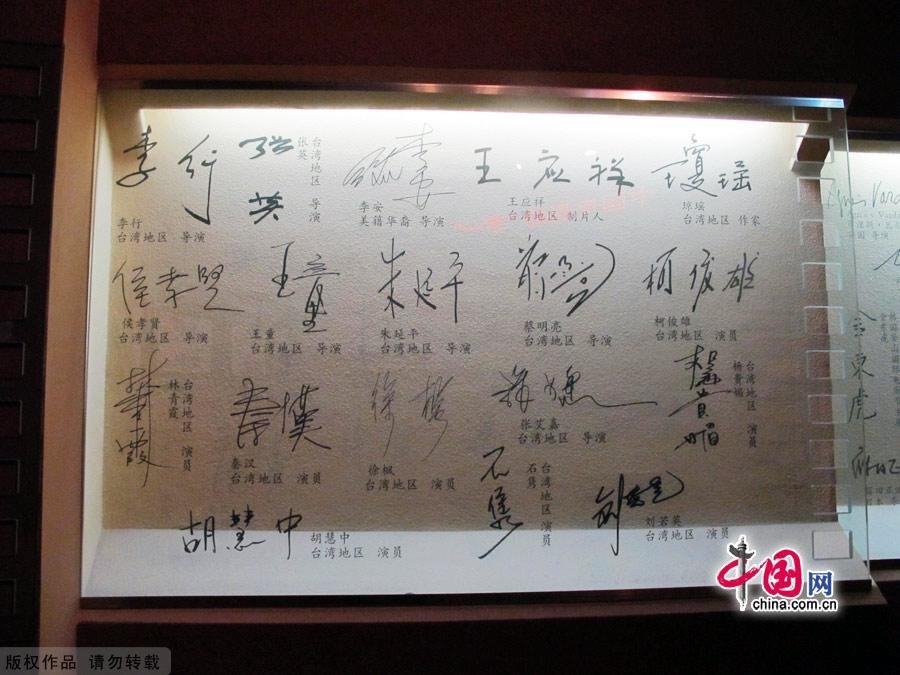 李行
李行
台湾地区 导演
张英
张英
台湾地区 导演
李安
李安
美籍华裔 导演
王应祥
王应祥
台湾地区 制片人
瓊瑶
琼瑶
台湾地区 作家
侯孝贤
侯孝贤
台湾地区 导演
王童
王童
台湾地区 导演
朱延平
朱延平
台湾地区 导演
蔡明亮
台湾地区 导演
柯俊雄
柯俊雄
台湾地区 演员
林青霞
台湾地区 演员
秦漢
秦汉
台湾地区 演员
徐枫
徐枫
台湾地区 演员
张艾嘉
台湾地区 导演
楊貴媚
杨贵媚
台湾地区 演员
胡慧中
胡慧中
台湾地区 演员
石隽
石隽
台湾地区 演员
刘若英
刘若英
台湾地区 演员
金東虎
中国网
china.com.cn
版权作品 请勿转载